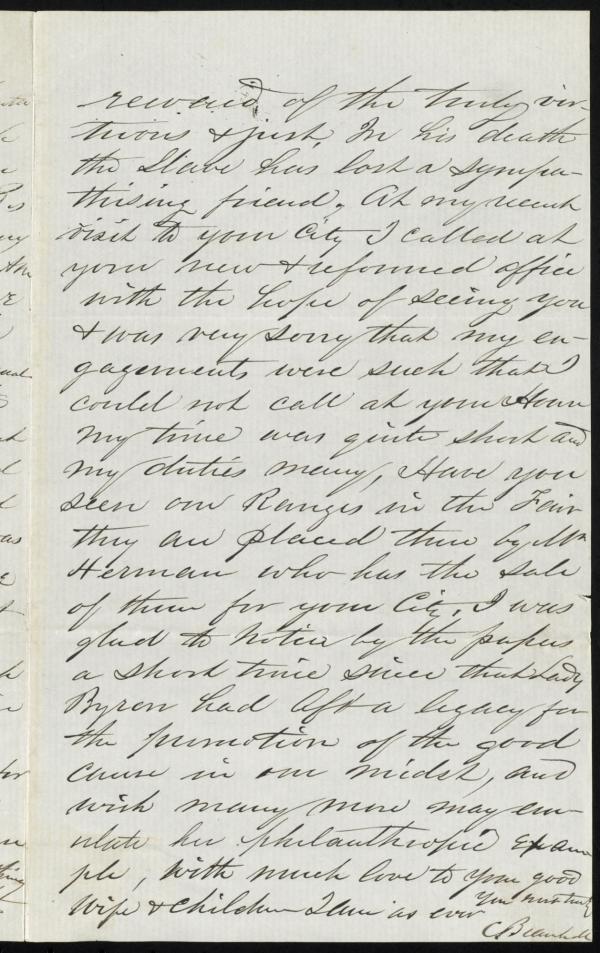 reward of the truly vir-
tuous & just, In his death
the Slave has lost a sympa-
thising friend. At my recent
visit to your City I called at
your new & reformed office
with the hope of seeing you
& was very sorry that my en-
gagements were such that I
could not call at your House
my time was quite short and
my duties many, Have you
seen our Ranges in the Fair
they are placed there by Mr
Herman who has the sale
of them for your City. I was
glad to notice by the papers
a short time since that Lady
Byron had left a legacy for
the promotion of the good
cause in our midst, and
wish many more may em-
ulate her philanthropic exam
ple, With much love to your good
Wife & children I am as ever
Yours most truly
C Bramhall